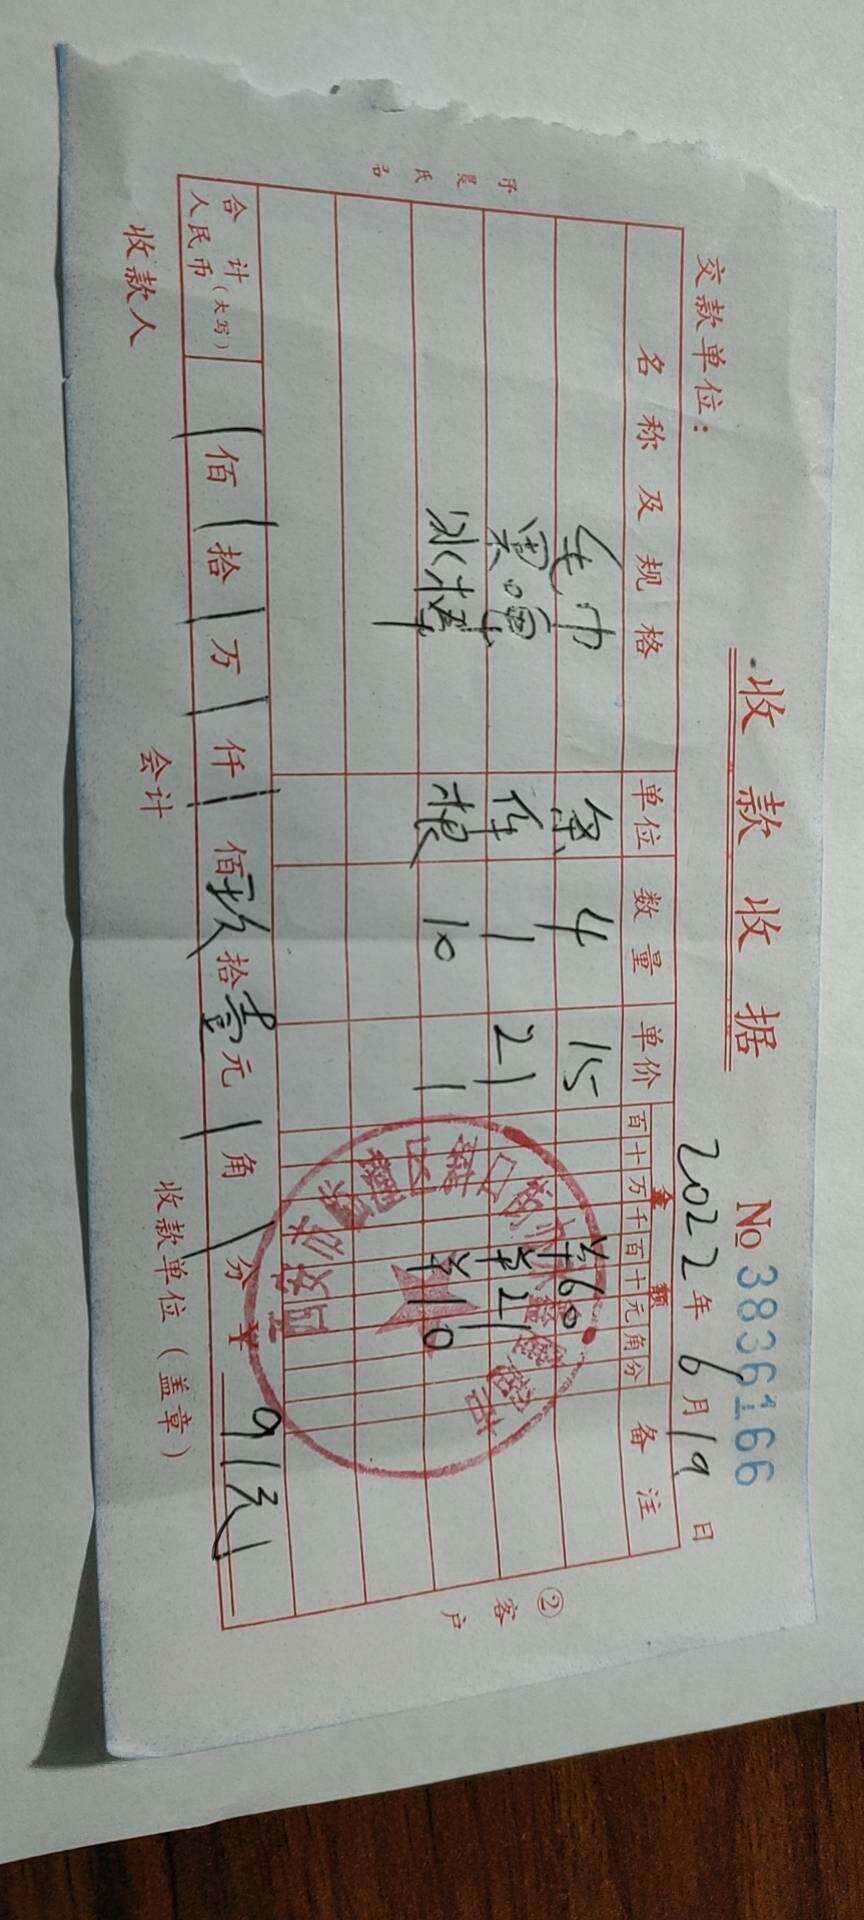 收款收据
№ 3836166
交款单位：
2022年6月19日
名称及规格 单位 数量 单价 金额 备注
百十万千百十元角分
毛巾 条 4 15 ¥60
果啤 件 1 21 ¥21
冰棒 根 10 1 ¥10
合计
人民币（大写） 佰 拾 万 仟 佰 玖拾壹元 角 分 ¥ 91元
收款人 会计 收款单位（盖章）
②客户